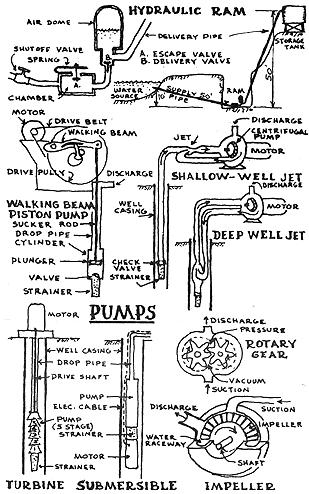 HYDRAULIC RAM
AIR DOME
DELIVERY PIPE
STORAGE
TANK
SHUTOFF VALVE
SPRING
A.
B.
A. ESCAPE VALVE
B. DELIVERY VALVE
CHAMBER
WATER
SOURCE
SUPPLY 50'
PIPE
10'
RAM
50'
MOTOR
DRIVE BELT
WALKING BEAM
DRIVE PULLY
DISCHARGE
WALKING BEAM
PISTON PUMP
SUCKER ROD
DROP PIPE
CYLINDER
PLUNGER
VALVE
STRAINER
DISCHARGE
CENTRIFUGAL
PUMP
JET
MOTOR
SHALLOW-WELL JET
WELL
CASING
CHECK
VALVE
STRAINER
DISCHARGE
MOTOR
DEEP WELL JET
PUMPS
MOTOR
WELL CASING
DROP PIPE
DRIVE SHAFT
PUMP
ELEC. CABLE
PUMP
(5 STAGE)
STRAINER
MOTOR
STRAINER
TURBINE
SUBMERSIBLE
DISCHARGE
PRESSURE
ROTARY
GEAR
VACUUM
SUCTION
DISCHARGE
SUCTION
IMPELLER
WATER
RACEWAY
SHAFT
IMPELLER